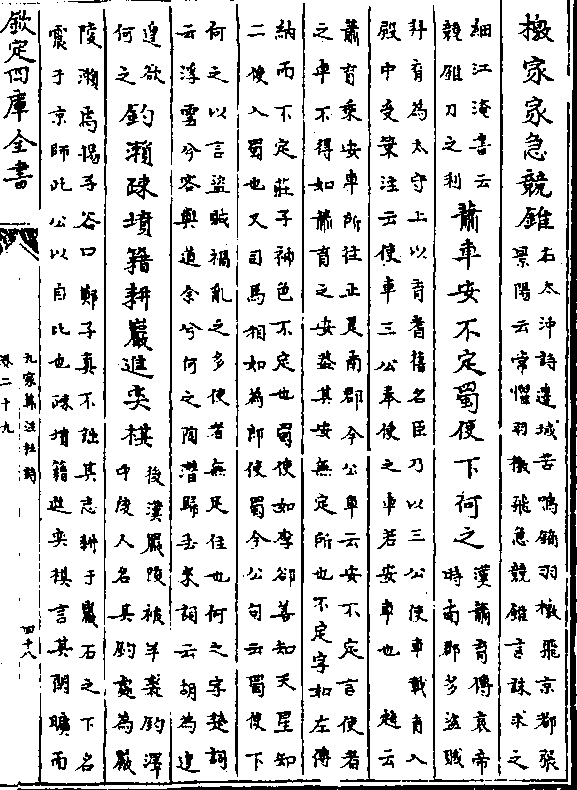 檄家家急競錐
左太沖詩邊城苦鳴鏑羽檄飛京都張
景陽云常懼羽檄飛急競錐言誅求之
細江淹書云
競錐刀之利
蕭車安不定蜀使下何之
漢蕭育傳哀帝
時南郡多盜賊
拜育為太守上以育耆舊名臣乃以三公使車載育入
殿中受策注云使車三公奉使之車若安車也 趙云
蕭育乘安車所往止是南郡今公車云安不定言使者
之車不得如蕭育之安蓋其安無定所也不定字如左傳
納而不定莊子神色不定也蜀使如李郃善知天星知
二使入蜀也又司馬相如為郎使蜀今公句云蜀使下
何之以言盜賊禍亂之多使者無足往也何之字楚詞
云浮雲兮容與道余兮何之陶潛歸去來詞云胡為遑
遑欲
何之
釣瀨疎墳籍耕巖進奕棋
後漢嚴陵被羊裘釣澤
中後人名其釣處為嚴
陵瀨焉揚子谷口鄭子真不詘其志耕于巖石之下名
震于京師此公以自比也疎墳籍進奕棋言其閒曠而
欽定四庫全書
九家集注杜詩
卷二十九
四十八